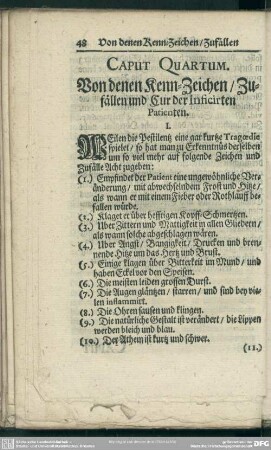 48 Von denen Kenn-Zeichen/Zufällen
CAPUT QUARTUM.
Von denen Kenn-Zeichen / Zu-
fällen und Cur der Inficirten
Patienten.
I.
WEilen die Pestilentz eine gar kurtze Tragœdie
spielet / so hat man zu Erkenntnüs derselben
um so viel mehr auf folgende Zeichen und
Zufälle Acht zugeben:
(1.) Empfindet der Patient eine ungewöhnliche Ver-
änderung / mit abwechselndem Frost und Hitze /
als wann er mit einem Fieber oder Rothlauff be-
fallen würde.
(2.) Klaget er über hefftigen Kopff-Schmertzen.
(3.) Uber Zittern und Mattigkeit in allen Gliedern /
als wann solche abgeschlagen wären.
(4.) Uber Angst / Bangigkeit / Drucken und bren-
nende Hitze um das Hertz und Brust.
(5.) Einige klagen über Bitterkeit im Mund / und
haben Eckel vor den Speisen.
(6.) Die meisten leiden grossen Durst.
(7.) Die Augen gläntzen / starren / und sind bey vie-
len inflammirt.
(8.) Die Ohren sausen und klingen.
(9.) Die natürliche Gestalt ist verändert / die Lippen
werden bleich und blau.
(10.) Der Athem ist kurtz und schwer.
(11.)